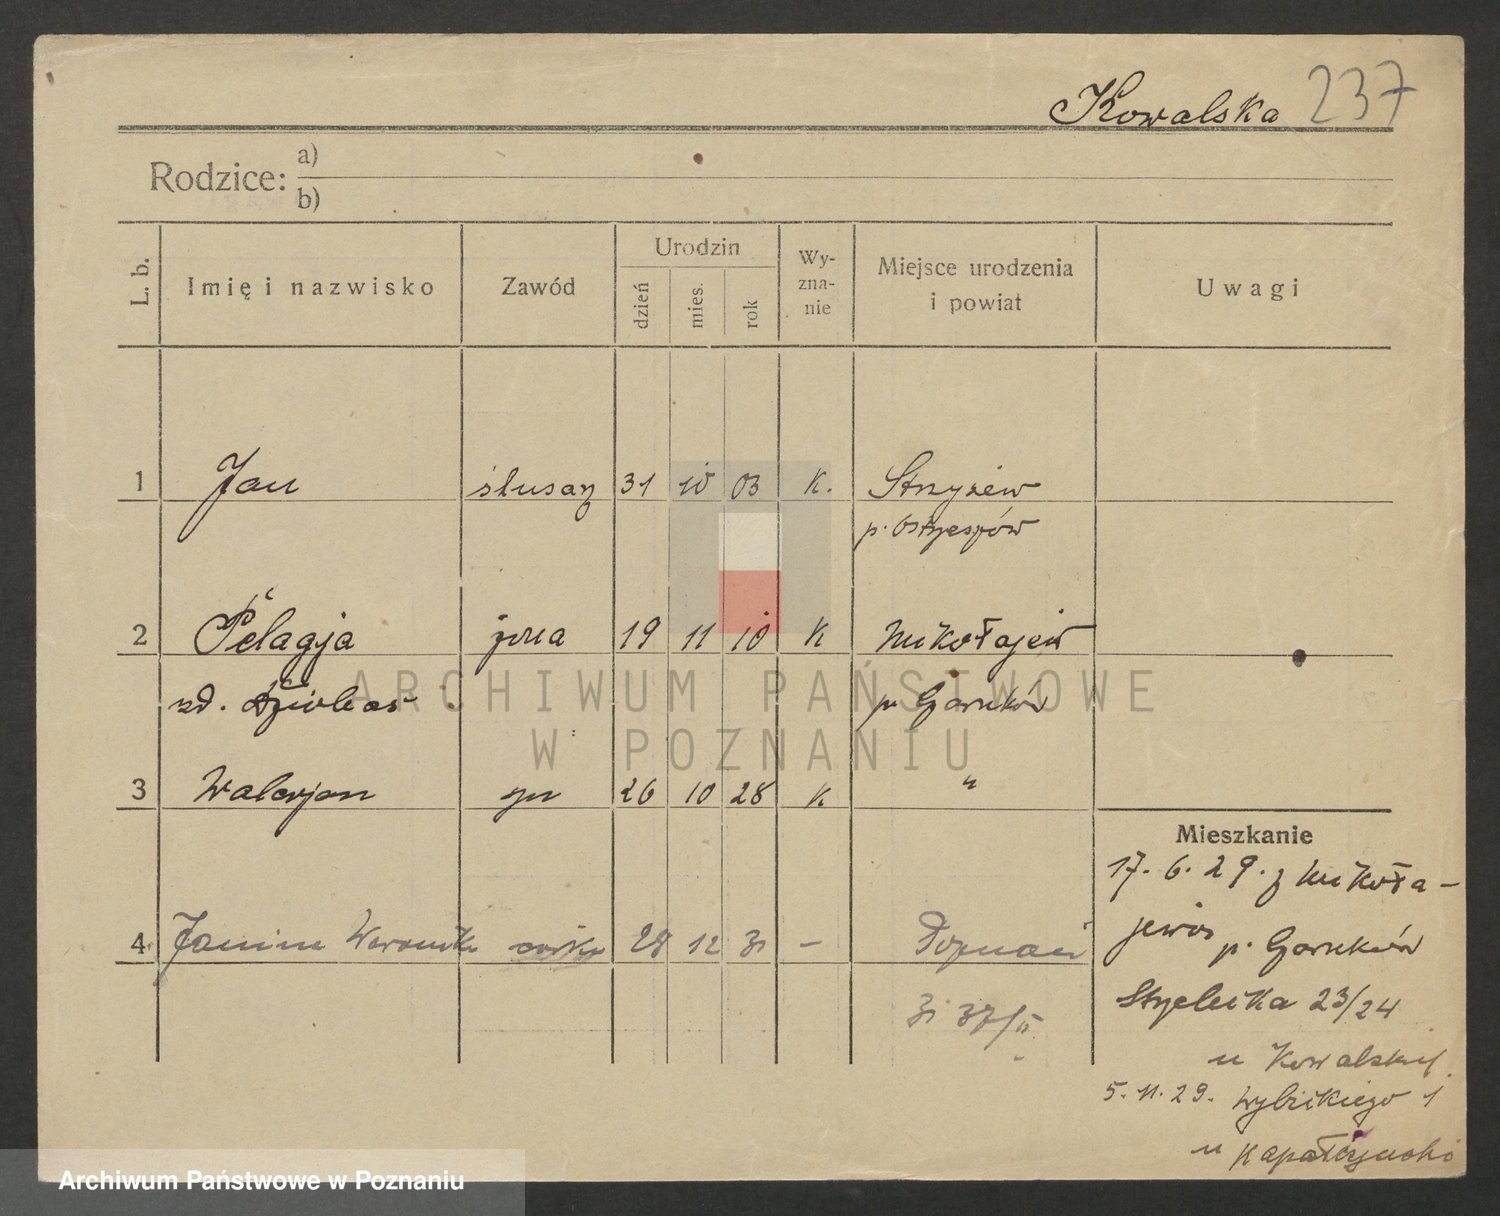 Kowalska 237
Rodzice: a)
b)
L. b. Imię i nazwisko Zawód Urodzin dzień mies. rok Wy-zna-nie Miejsce urodzenia i powiat Uwagi
1 Jan ślusarz 31 10 03 K. Strzyżew
p. Ostrzeszów
2 Pelagja żona 19 11 10 K Mikołajew
zd. p.
3 Walerjan syn 26 10 28 K "
ARCHIWUM PAŃSTWOWE
W POZNANIU
Mieszkanie
17. 6. 29. z Mikoła-
jewa p.
4 Janina Weronika córka 28 12 31 – Poznań
Strzelecka 23/24
31 37/II
u Kowalskiej
5. 11. 29. Wybickiego 1
u
Archiwum Państwowe w Poznaniu